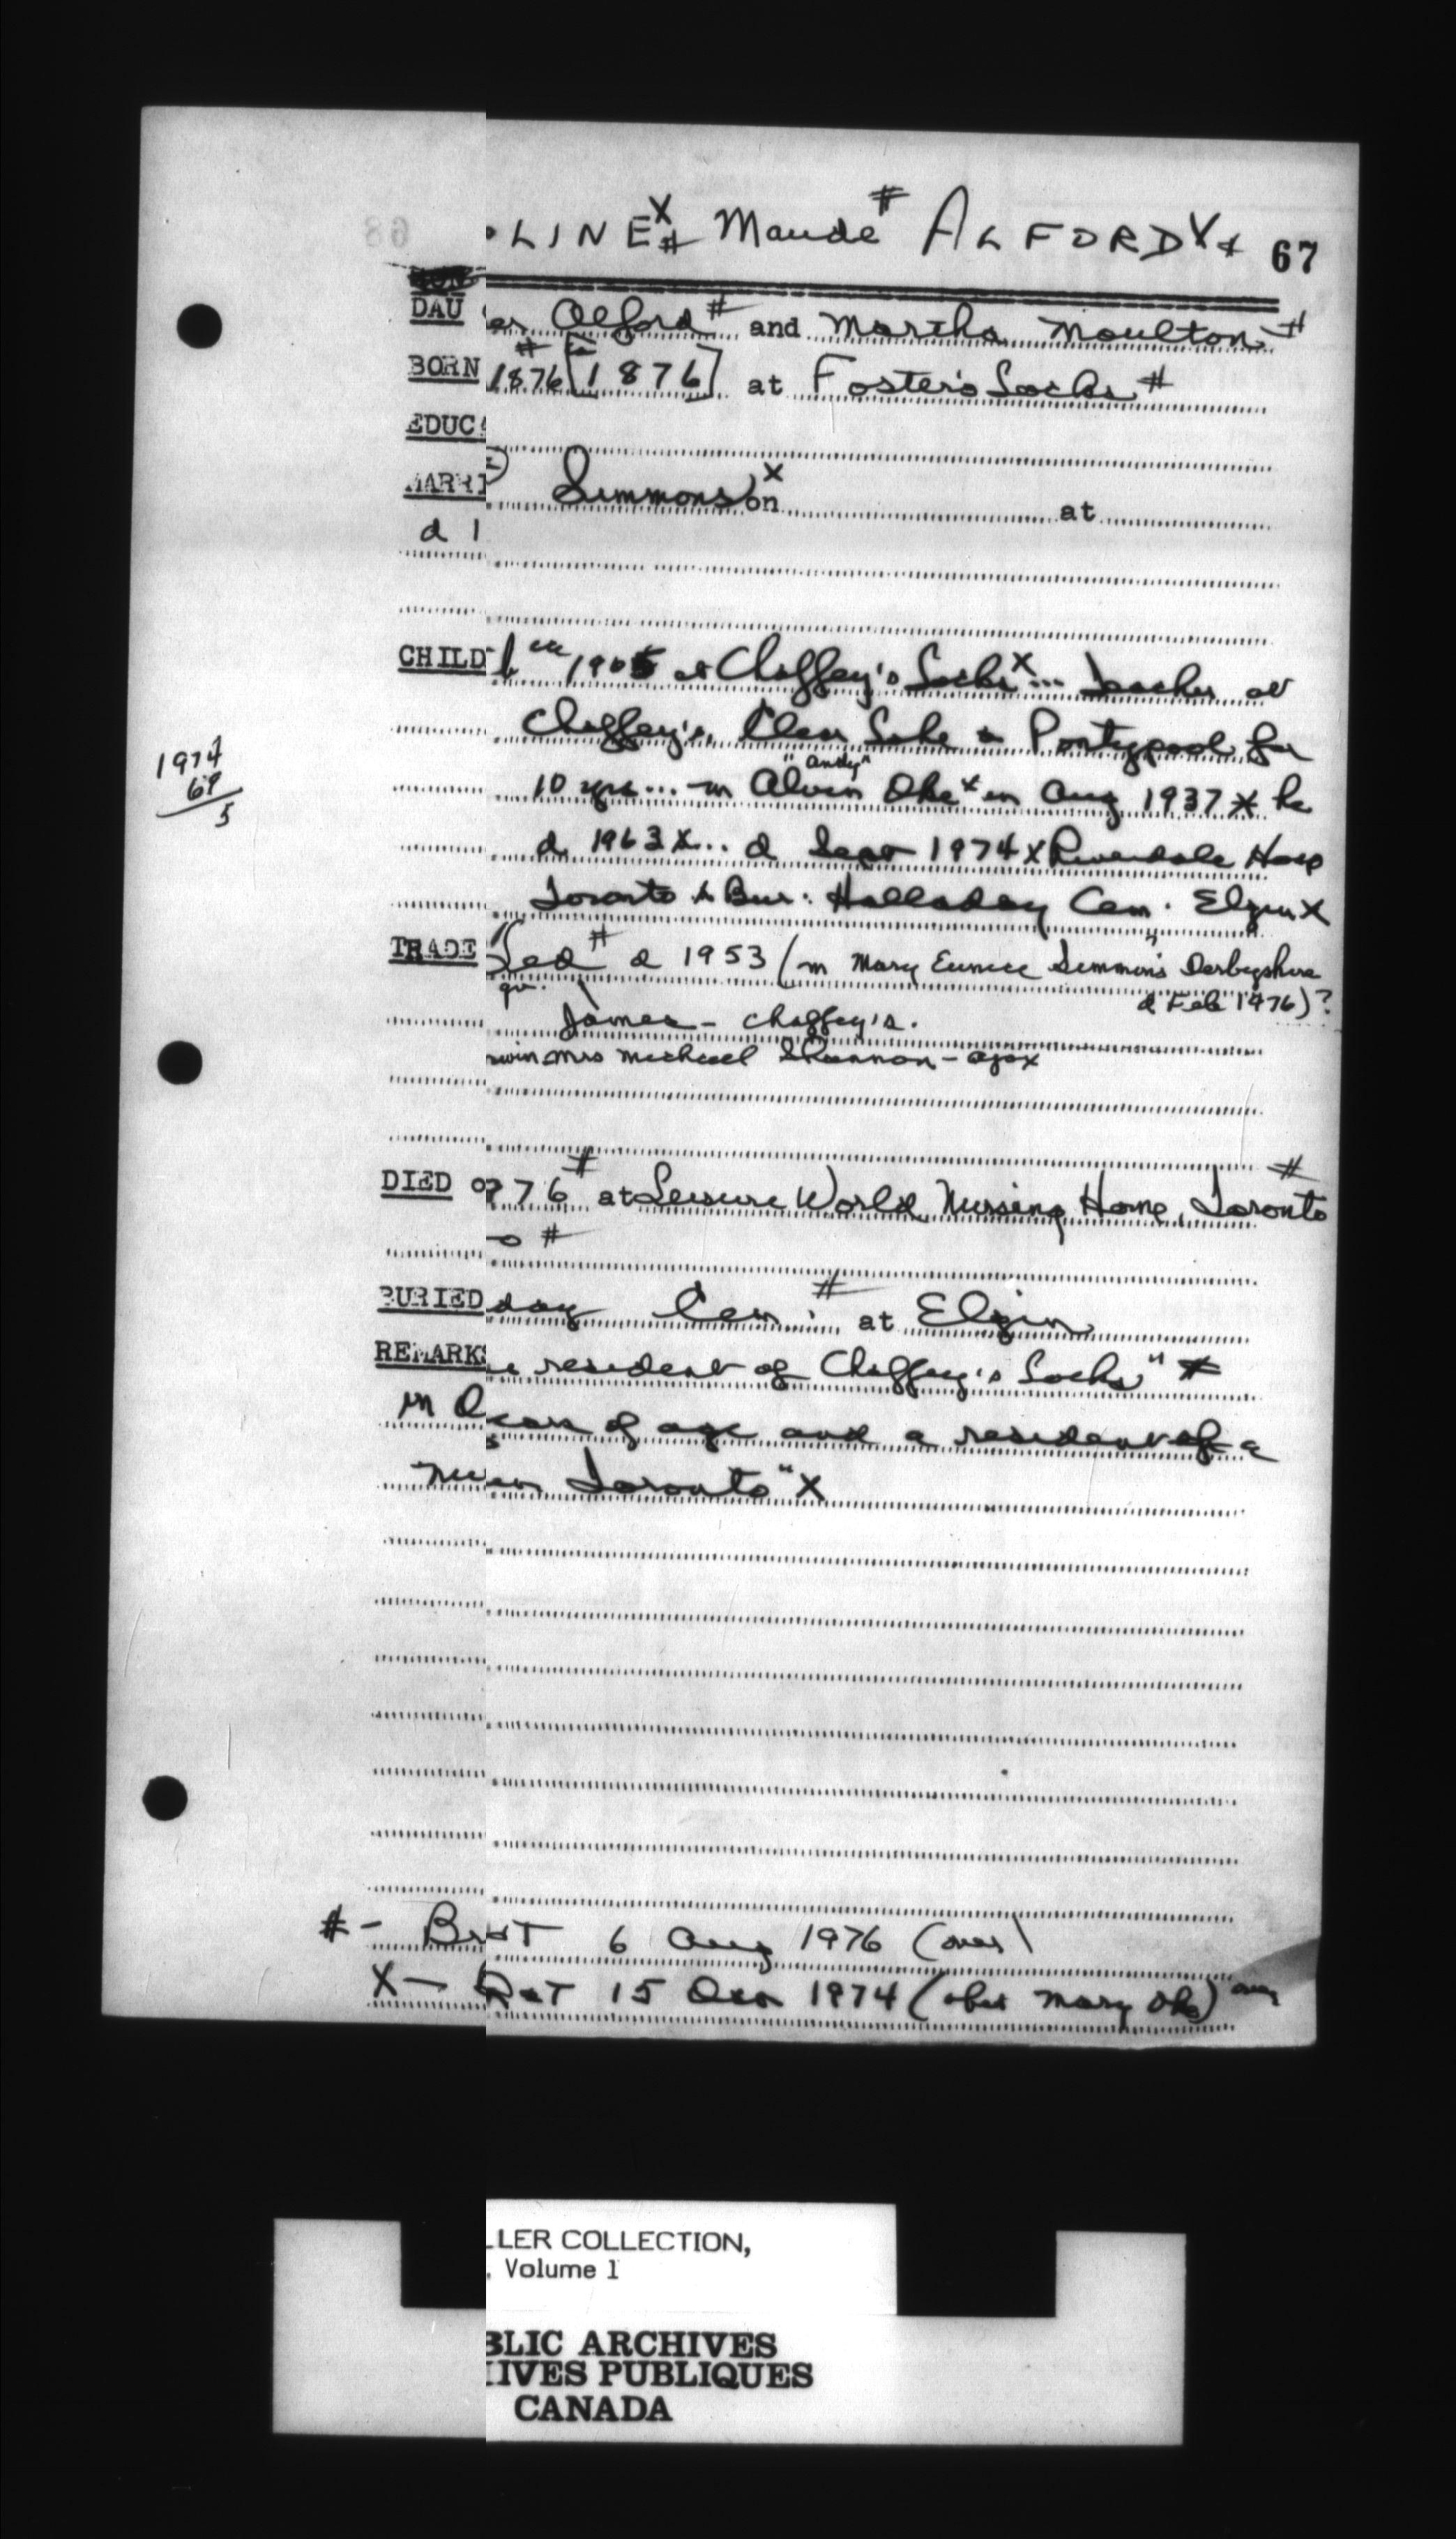 LINE X # Maude # ALFORD X # 67
DAU er Alford # and Martha Moulton #
BORN 1876 # [1876] at Foster's Locks #
EDUC
MARRI Simmons X on at
d 1
CHILD 1905 at Chaffey's Locks X ... teacher at
Chaffey's, Clear Lake & Pontypool for
10 yrs ... m Alvin "Andy" Oke X in Aug 1937 X he
d 1963 X ... d Sept 1974 X Riverdale Hosp
1974
69
5
Toronto X Bur: Halladay Cem. Elgin X
TRADE Led # d 1953 (m Mary Eunice Simmons Derbyshire
qv. d Feb 1976)?
James - Chaffey's.
win Mrs Michael Shannon - Ajax
DIED 976 # at Leisure World Nursing Home, Toronto #
o #
BURIED day Cem. # at Elgin
REMARKS resident of Chaffey's Locks" #
in ears of age and a resident of a
Nu Toronto" X
# - 6 Aug 1976 (over)
X - 15 1974 (obit Mary Oke)
LLER COLLECTION,
. Volume 1
BLIC ARCHIVES
IVES PUBLIQUES
CANADA